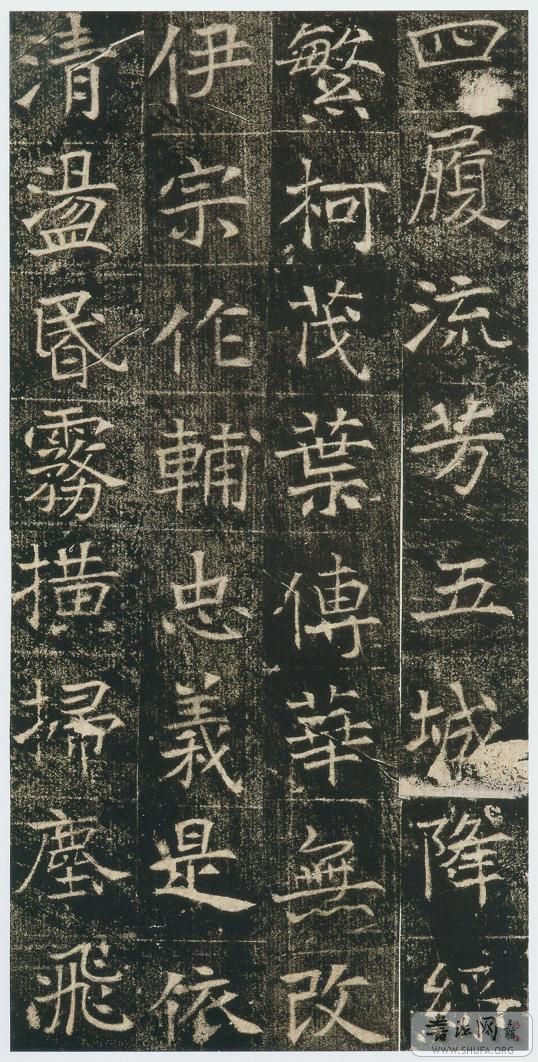 四履流芳五城隆
繁柯茂葉傳華無改
伊宗作輔忠義是依
清盪昬霧橫掃塵飛
書法网
WWW.SHUFA.ORG